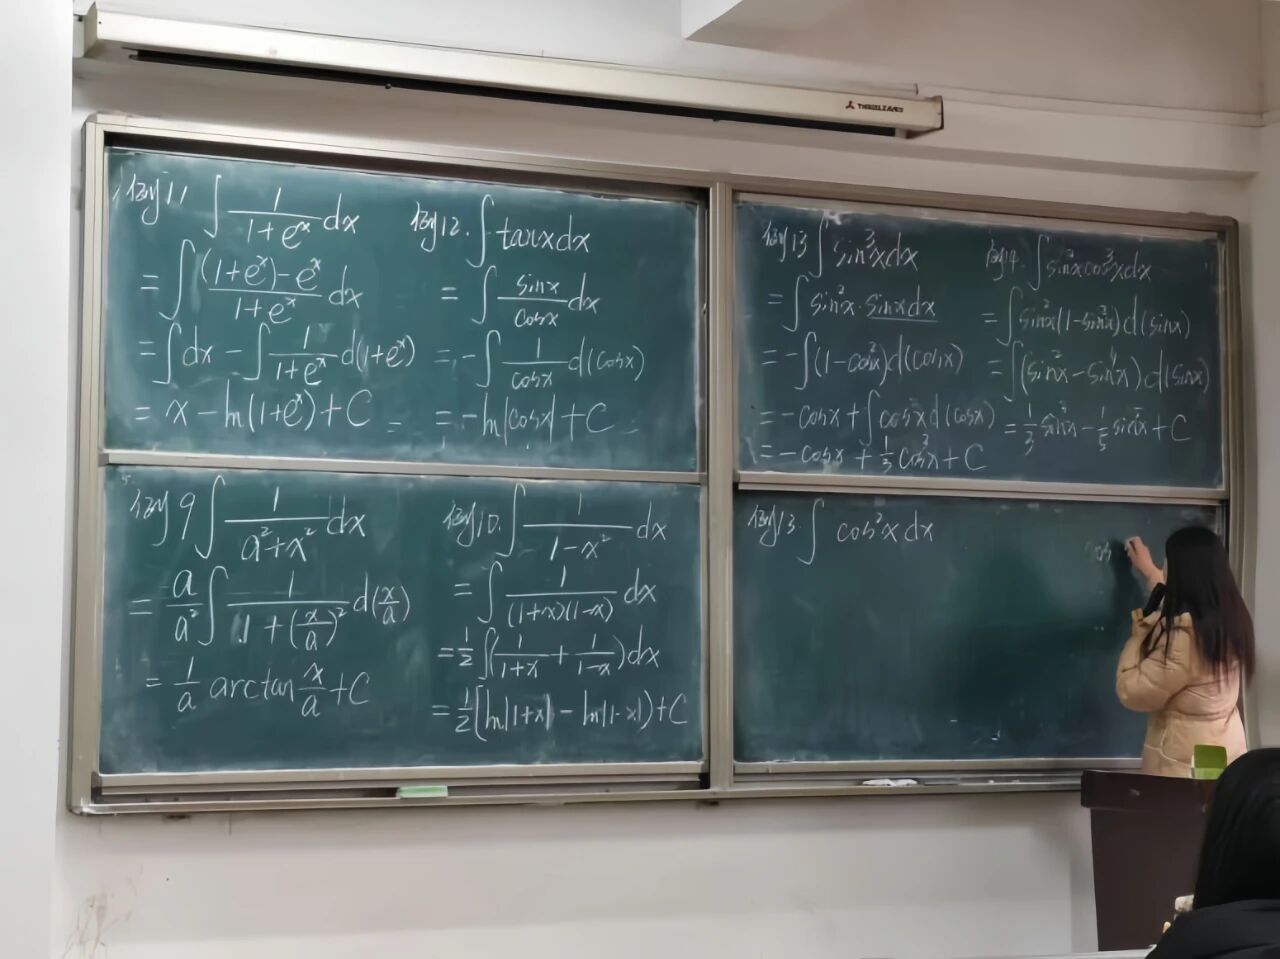 THREELEAVES
例11 ∫ 1/(1+e^x) dx
= ∫ ((1+e^x)-e^x)/(1+e^x) dx
= ∫dx - ∫ 1/(1+e^x) d(1+e^x)
= x - ln(1+e^x) + C
例12. ∫tanxdx
= ∫ sinx/cosx dx
= -∫ 1/cosx d(cosx)
= -ln|cosx| + C
例13 ∫sin³xdx
= ∫sin²x·sinxdx
= -∫(1-cos²x)d(cosx)
= -cosx + ∫cos²xd(cosx)
= -cosx + 1/3 cos³x + C
例14. ∫sin²xcos³xdx
= ∫sin²x(1-sin²x)d(sinx)
= ∫(sin²x - sin⁴x)d(sinx)
= 1/3 sin³x - 1/5 sin⁵x + C
例9 ∫ 1/(a²+x²) dx
= a/a² ∫ 1/(1+(x/a)²) d(x/a)
= 1/a arctan x/a + C
例10. ∫ 1/(1-x²) dx
= ∫ 1/((1+x)(1-x)) dx
= 1/2 ∫(1/(1+x) + 1/(1-x))dx
= 1/2 [ln|1+x| - ln|1-x|) + C
例13. ∫ cos²x dx
cos